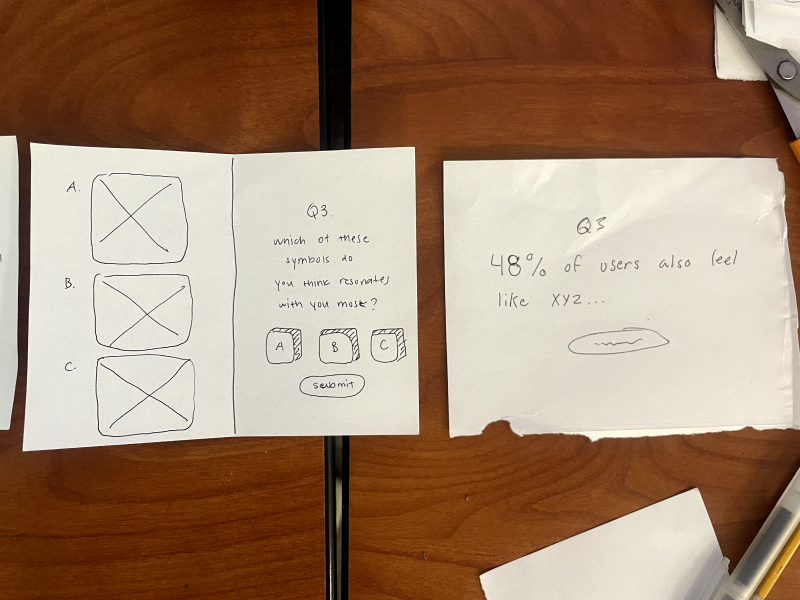 A.
B.
C.
Q3.
which of these
symbols do
you think resonates
with you most?
A B C
submit
Q3
48% of users also feel
like XYZ...